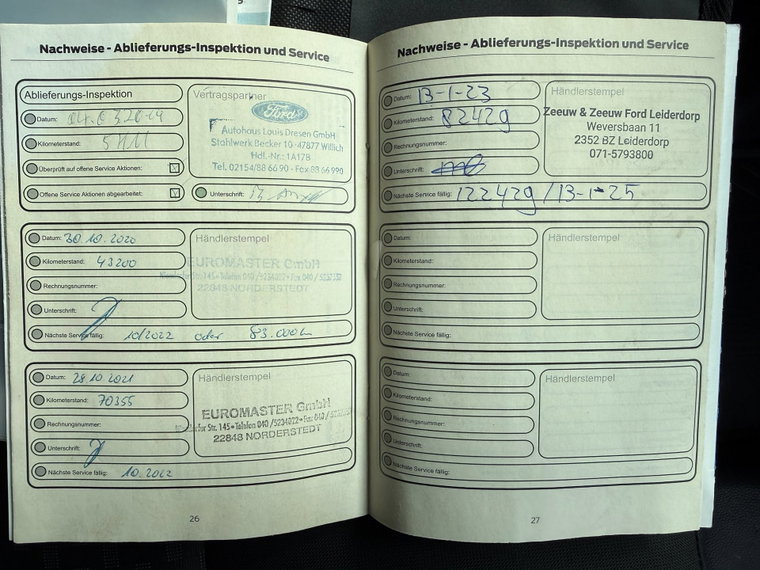 Nachweise - Ablieferungs-Inspektion und Service
Ablieferungs-Inspektion
Datum:
Kilometerstand:
Überprüft auf offene Service Aktionen:
Offene Service Aktionen abgearbeitet:
Vertragspartner
Ford
Autohaus Louis Dresen GmbH
Stahlwerk Becker 10 · 47877 Willich
Hdl.-Nr.: 1A17B
Tel. 02154/88 66 90 - Fax 88 66 990
Unterschrift:
Datum: 30.10.2020
Kilometerstand: 43200
Rechnungsnummer:
Unterschrift:
Nächste Service fällig: 10/2022 oder 83.000
Händlerstempel
EUROMASTER GmbH
Str. 145 • Telefon 040 / 5234022 • Fax 040 /
22848 NORDERSTEDT
Datum: 29.10.2021
Kilometerstand: 70355
Rechnungsnummer:
Unterschrift:
Nächste Service fällig: 10.2022
Händlerstempel
EUROMASTER GmbH
Str. 145 • Telefon 040 / 5234022 • Fax 040 /
22848 NORDERSTEDT
26
Nachweise - Ablieferungs-Inspektion und Service
Datum: 13-1-23
Kilometerstand: 82429
Rechnungsnummer:
Unterschrift:
Nächste Service fällig: 122429 / 13-1-25
Händlerstempel
Zeeuw & Zeeuw Ford Leiderdorp
Weversbaan 11
2352 BZ Leiderdorp
071-5793800
Datum:
Kilometerstand:
Rechnungsnummer:
Unterschrift:
Nächste Service fällig:
Händlerstempel
Datum:
Kilometerstand:
Rechnungsnummer:
Unterschrift:
Nächste Service fällig:
Händlerstempel
27